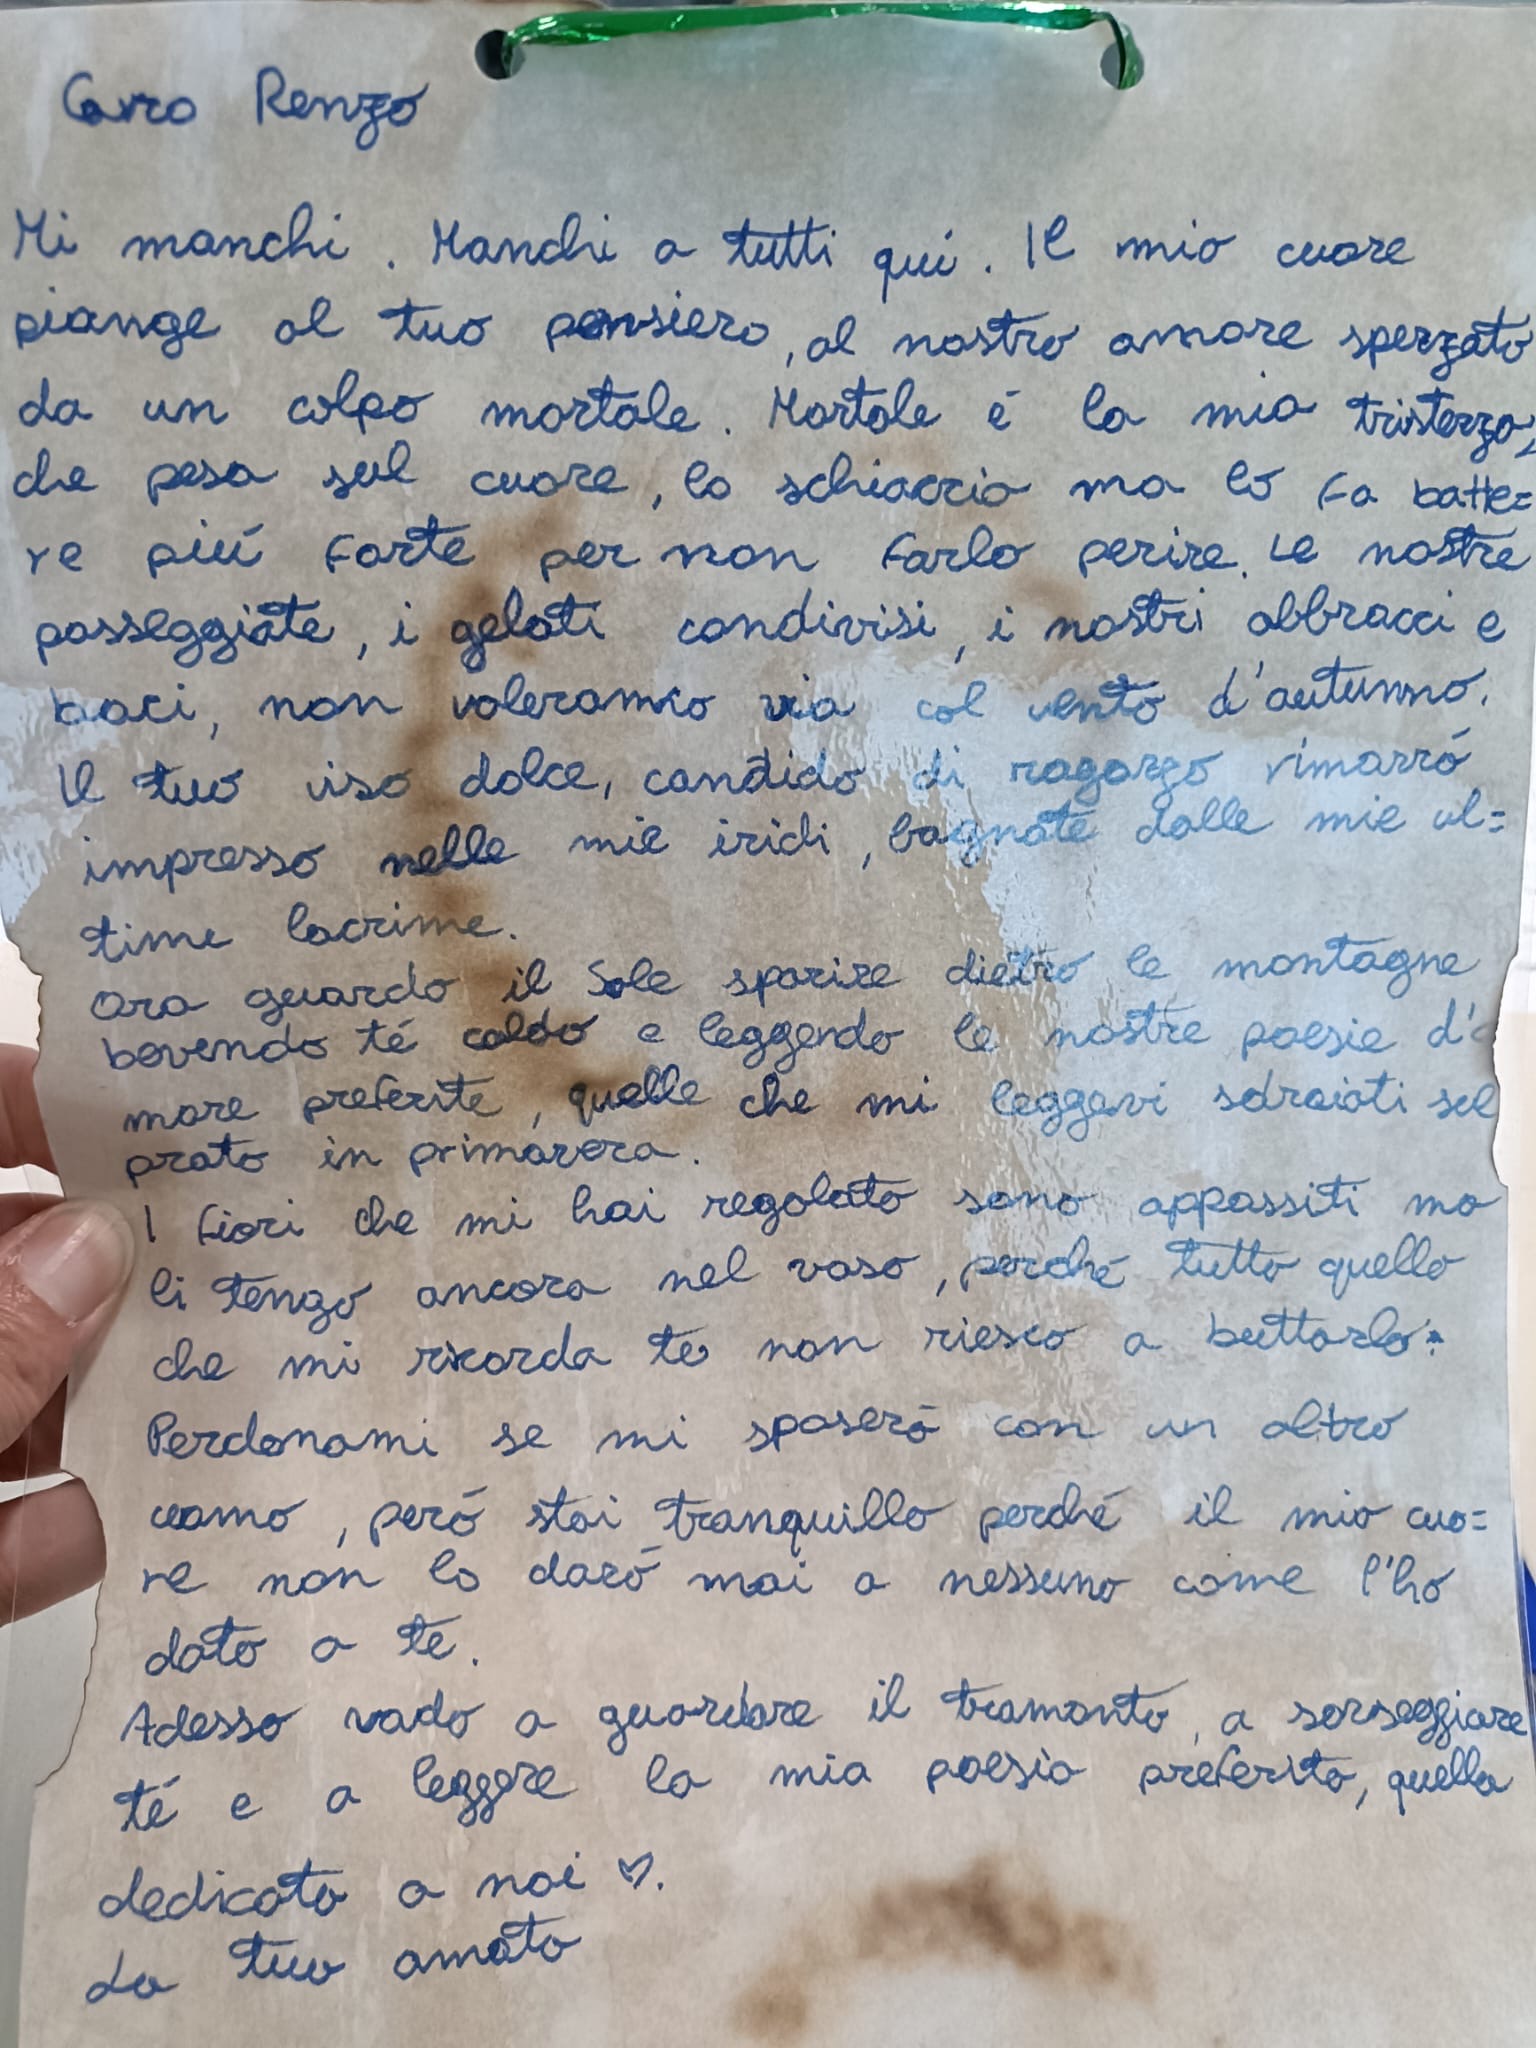 Caro Renzo
Mi manchi. Manchi a tutti qui. Il mio cuore
piange al tuo pensiero, al nostro amore sperzato
da un colpo mortale. Mortale é la mia tristezza,
che pesa sul cuore, lo schiaccia ma lo fa batte=
re piú forte per non farlo perire. Le nostre
passeggiate, i gelati condivisi, i nostri abbracci e
baci, non voleranno via col vento d'autunno.
Il tuo viso dolce, candido di ragazzo rimarró
impresso nelle mie iridi, bagnate dalle mie ul=
time lacrime.
Ora guardo il Sole sparire dietro le montagne
bevendo té caldo e leggendo le nostre poesie d'a
more preferite, quelle che mi leggevi sdraiati sul
prato in primavera.
I fiori che mi hai regalato sono appassiti ma
li tengo ancora nel vaso, perché tutto quello
che mi ricorda te non riesco a buttarlo.
Perdonami se mi sposeró con un altro
uomo, peró stai tranquillo perché il mio cuo=
re non lo daró mai a nessuno come l'ho
dato a te.
Adesso vado a guardare il tramonto, a sorseggiare
té e a leggere la mia poesia preferita, quella
dedicata a noi ♡.
La tua amata